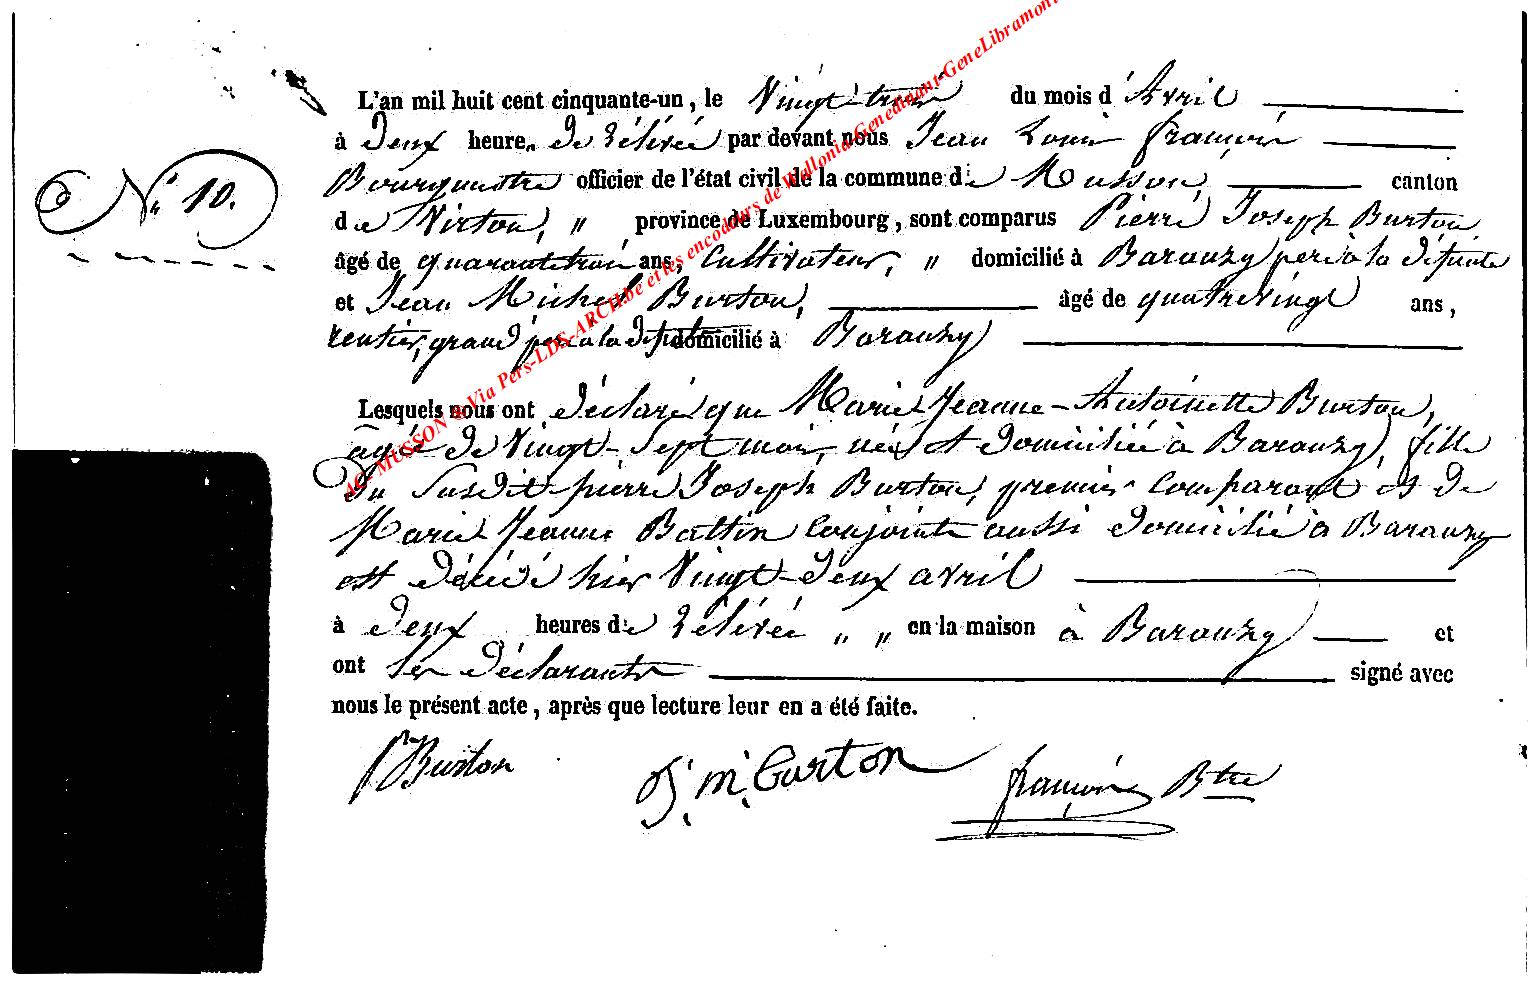 L'an mil huit cent cinquante-un, le Vingt-trois du mois d'Avril
à Deux heures de rélévée par devant nous Jean Louis françois
Bourgmestre officier de l'état civil de la commune de Musson, canton
N.° 10.
de Virton, " province de Luxembourg, sont comparus Pierre Joseph Burton
âgé de quarante trois ans, Cultivateur, " domicilié à Baranzy père à la défunte
et Jean Michel Burton, âgé de quatrevingt ans,
rentier, grand père à la défunte domicilié à Baranzy
Lesquels nous ont déclaré que Marie-Jeanne-Antoinette Burton,
âgée de Vingt-Sept mois, née et domiciliée à Baranzy, fille
du susdit pierre Joseph Burton, premier comparant et de
Marie Jeanne Battin conjointe aussi domicilié à Baranzy
est décédé hier Vingt-deux avril
à deux heures de rélévée " " en la maison à Baranzy et
ont les déclarants signé avec
nous le présent acte, après que lecture leur en a été faite.
P Burton J. m. Burton françois Btre
AC- MUSSON Via Pers-LDS-ARCH.be et les encodeurs de Wallonia-Genedinant-GeneLibramont